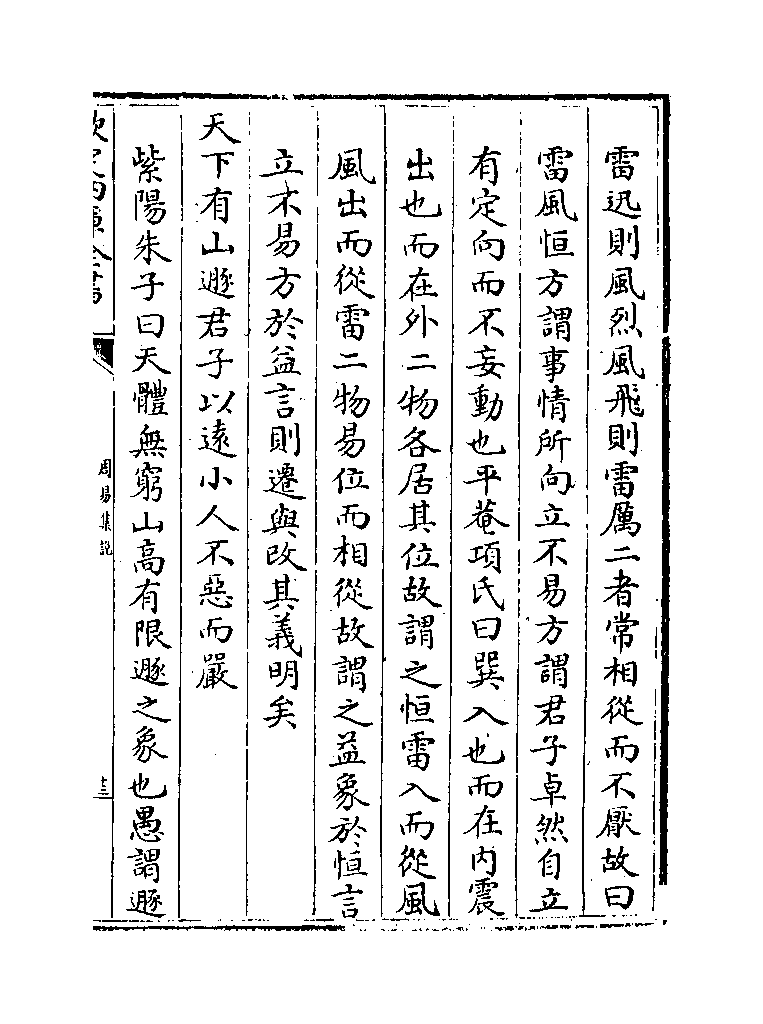 雷迅則風烈風飛則雷厲二者常相從而不厭故曰
雷風恒方謂事情所向立不易方謂君子卓然自立
有定向而不妄動也平菴項氏曰巽入也而在内震
出也而在外二物各居其位故謂之恒雷入而從風
風出而從雷二物易位而相從故謂之益象於恒言
立不易方於益言則遷與改其義明矣
天下有山遯君子以遠小人不惡而嚴
紫陽朱子曰天體無窮山高有限遯之象也愚謂遯
周易集說
十三